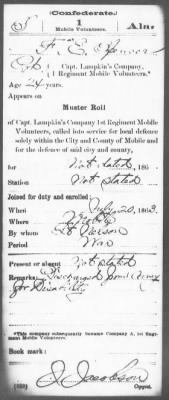 (Confederate.)
S 1 Ala
Mobile Volunteers.
F. E. Spencer
Pvt, Capt. Lumpkin's Company,
1 Regiment Mobile Volunteers.*
Age 24 years.
Appears on
Muster Roll
of Capt. Lumpkin's Company 1st Regiment Mobile
Volunteers, called into service for local defence
solely within the City and County of Mobile and
for the defence of said city and county,
for Not dated, 186 .
Station Not stated
Joined for duty and enrolled:
When 1863.
Where Mobile
By whom Lt
Period War
Present or absent Not stated
Remarks: Discharged from Army
for Disability
*This company subsequently became Company A, 1st Regiment
Mobile Volunteers.
Book mark:
J. Jacobson
Copyist.